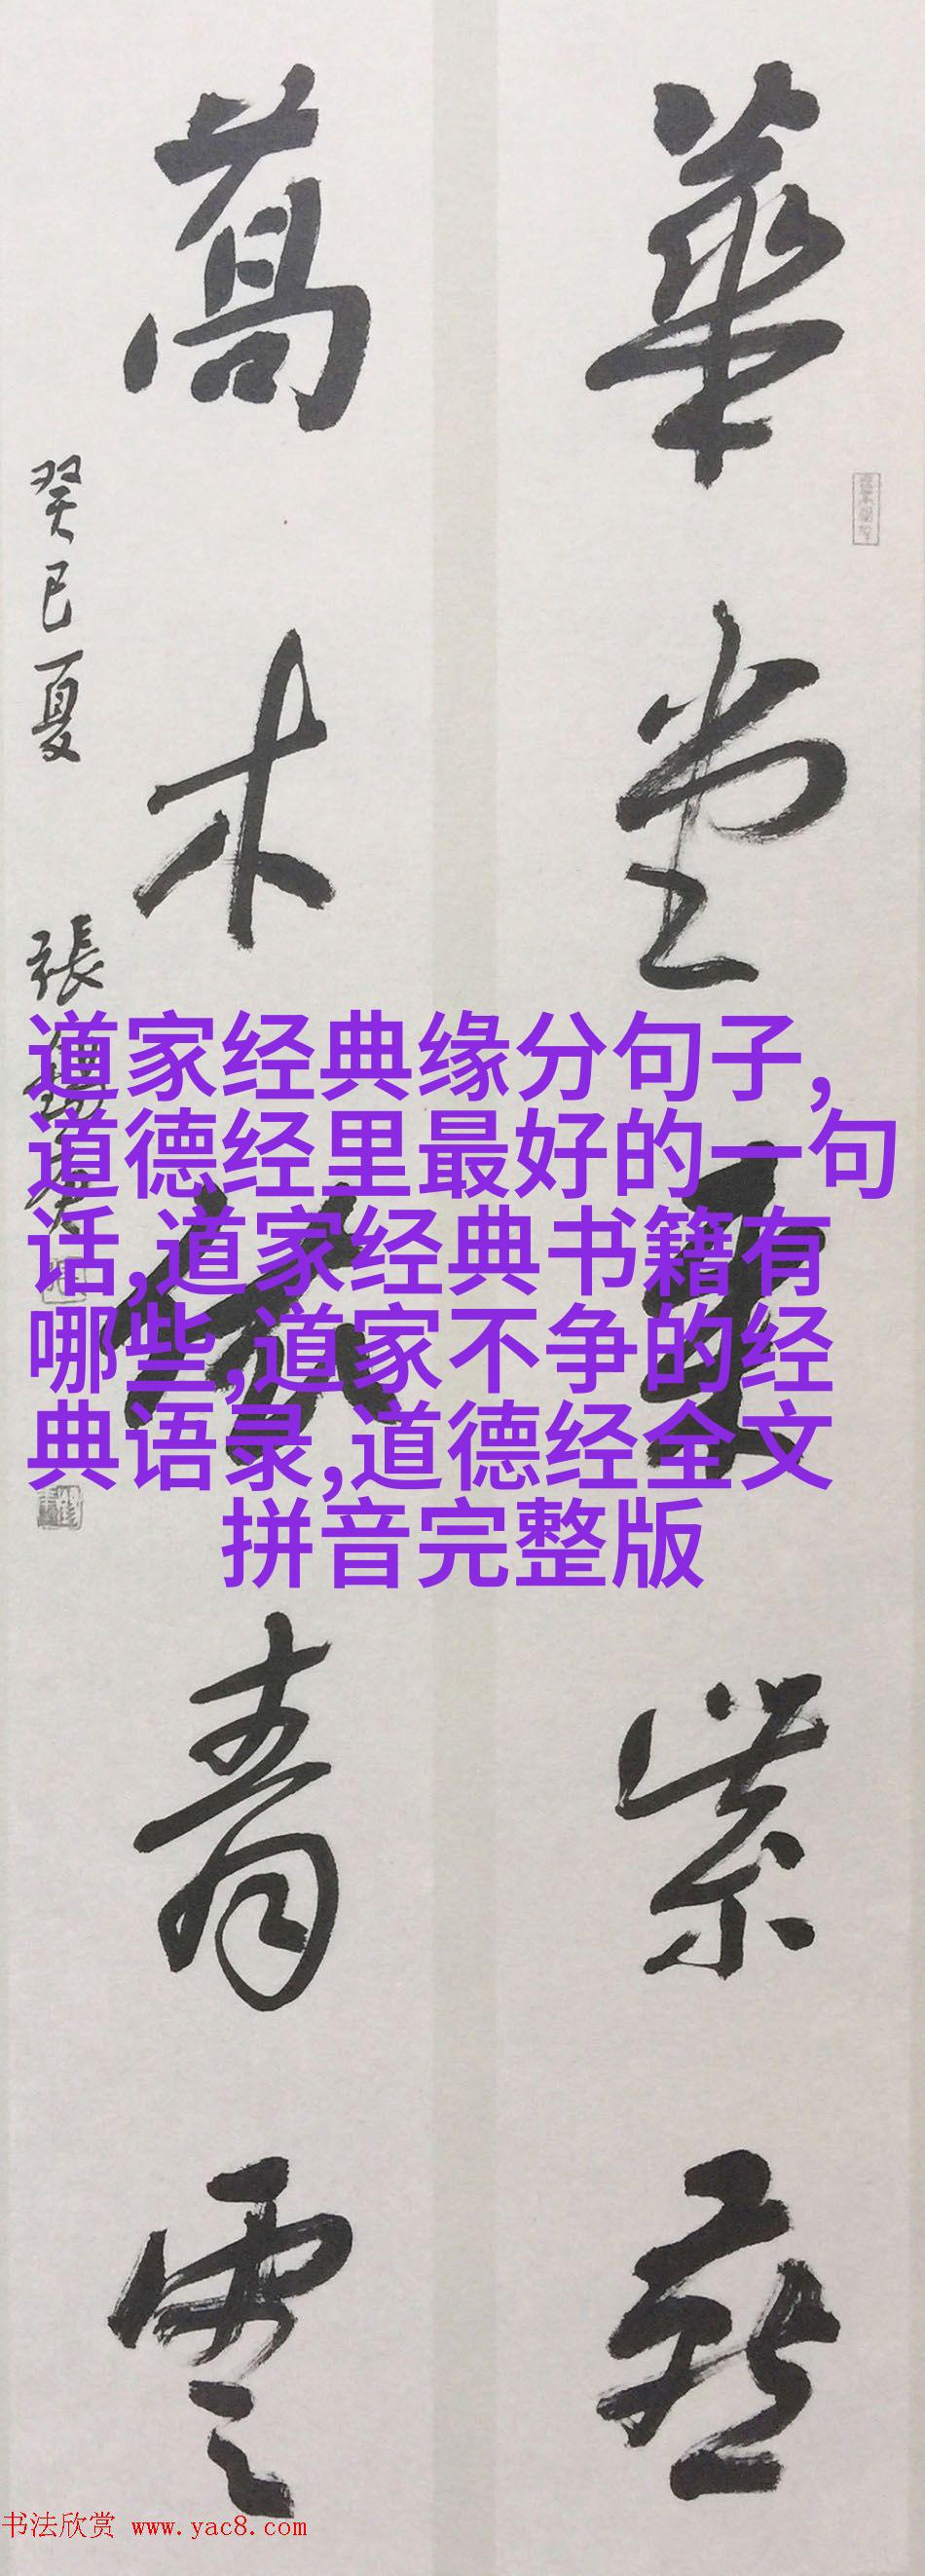 華堂
紫
萬木
青雲
癸巳夏 張
道家经典缘分句子,
道德经里最好的一句
话,道家经典书籍有
哪些,道家不争的经
典语录,道德经全文
拼音完整版
书法欣赏 www.yac8.com